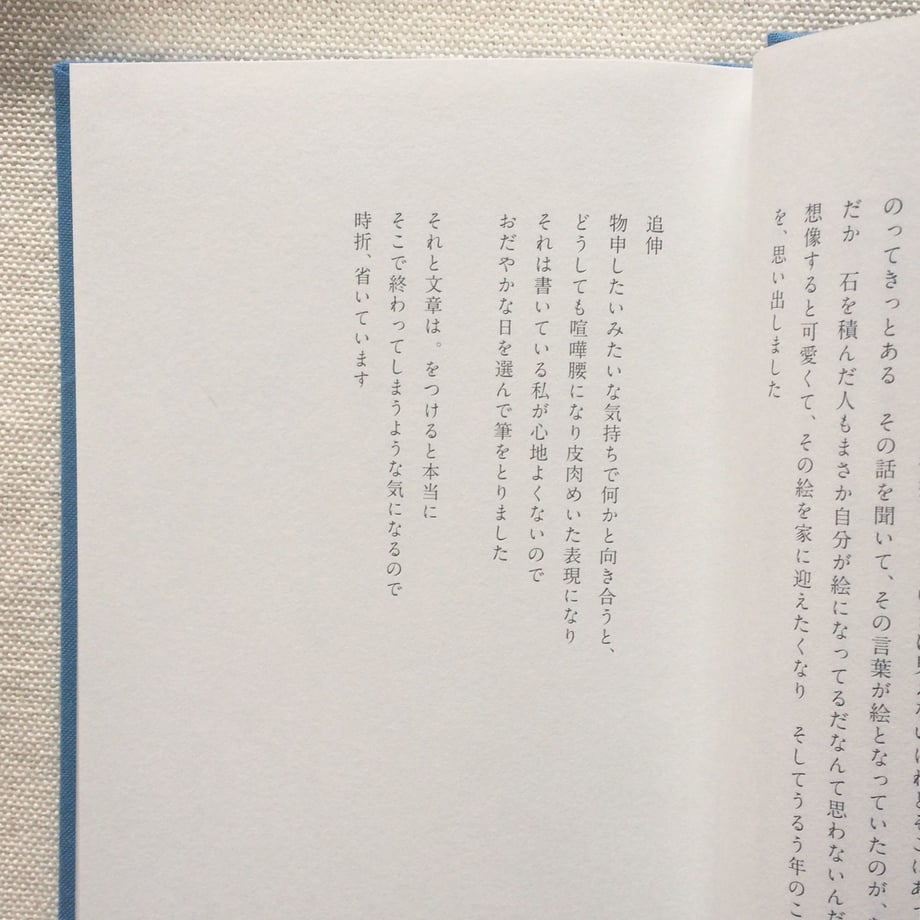 のってきっとある　その話を聞いて、その言葉が絵となっていたのが、
だか　石を積んだ人もまさか自分が絵になってるだなんて思わないんだ
想像すると可愛くて、その絵を家に迎えたくなり　そしてうるう年のこ
を、思い出しました
追伸
物申したいみたいな気持ちで何かと向き合うと、
どうしても喧嘩腰になり皮肉めいた表現になり
それは書いている私が心地よくないので
おだやかな日を選んで筆をとりました
それと文章は。をつけると本当に
そこで終わってしまうような気になるので
時折、省いています